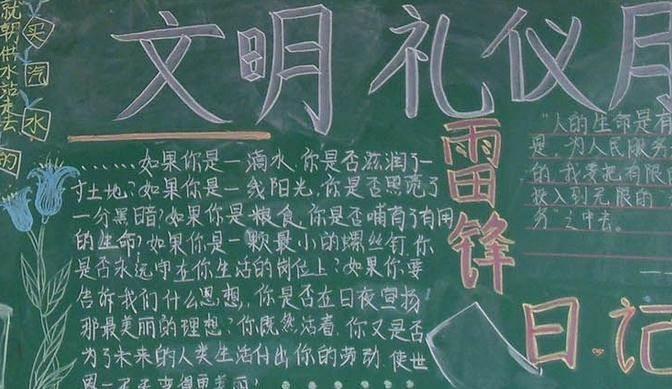 文明礼仪月
就朝供水站走去
买汽水
的
雷锋
日记
……如果你是一滴水,你是否滋润了一
寸土地?如果你是一线阳光,你是否照亮了
一分黑暗?如果你是粮食,你是否哺育了有用
的生命?如果你是一颗最小的螺丝钉,你
是否永远守在你生活的岗位上?如果你要
告诉我们什么思想,你是否在日夜宣扬
那最美丽的理想?你既然活着,你又是否
为了未来的人类生活付出你的劳动,使世
界一天天变得更美丽!
"人的生命是有
是,为人民服务
的,我要把有限的
投入到无限的
务"之中去。